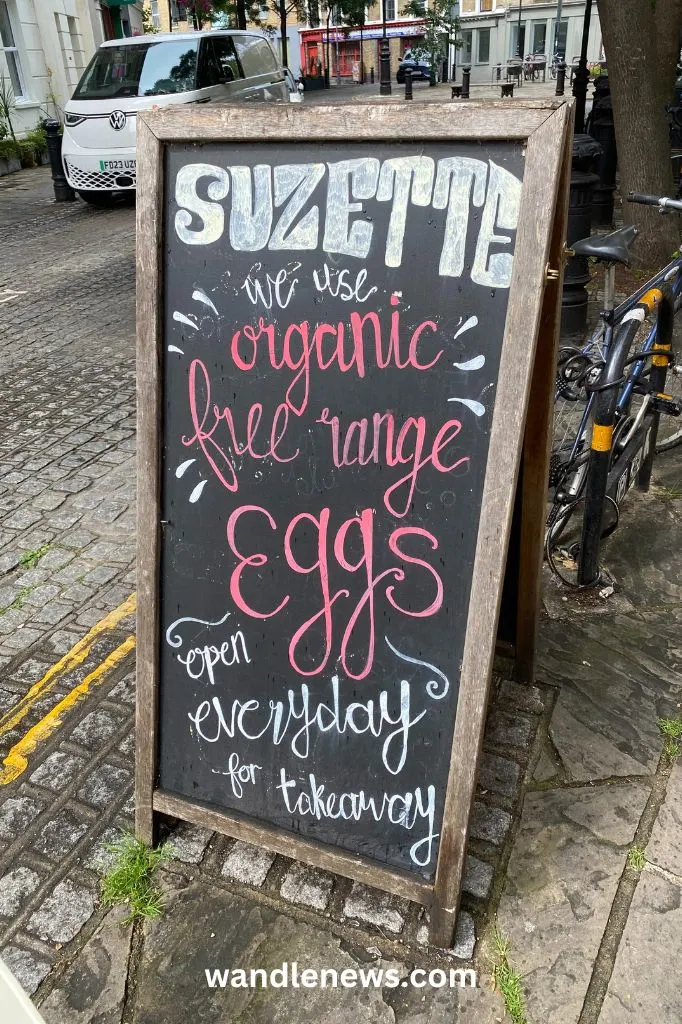 FD23 UZG
SUZETTE
we use
organic
free range
Eggs
open
everyday
for takeaway
wandlenews.com